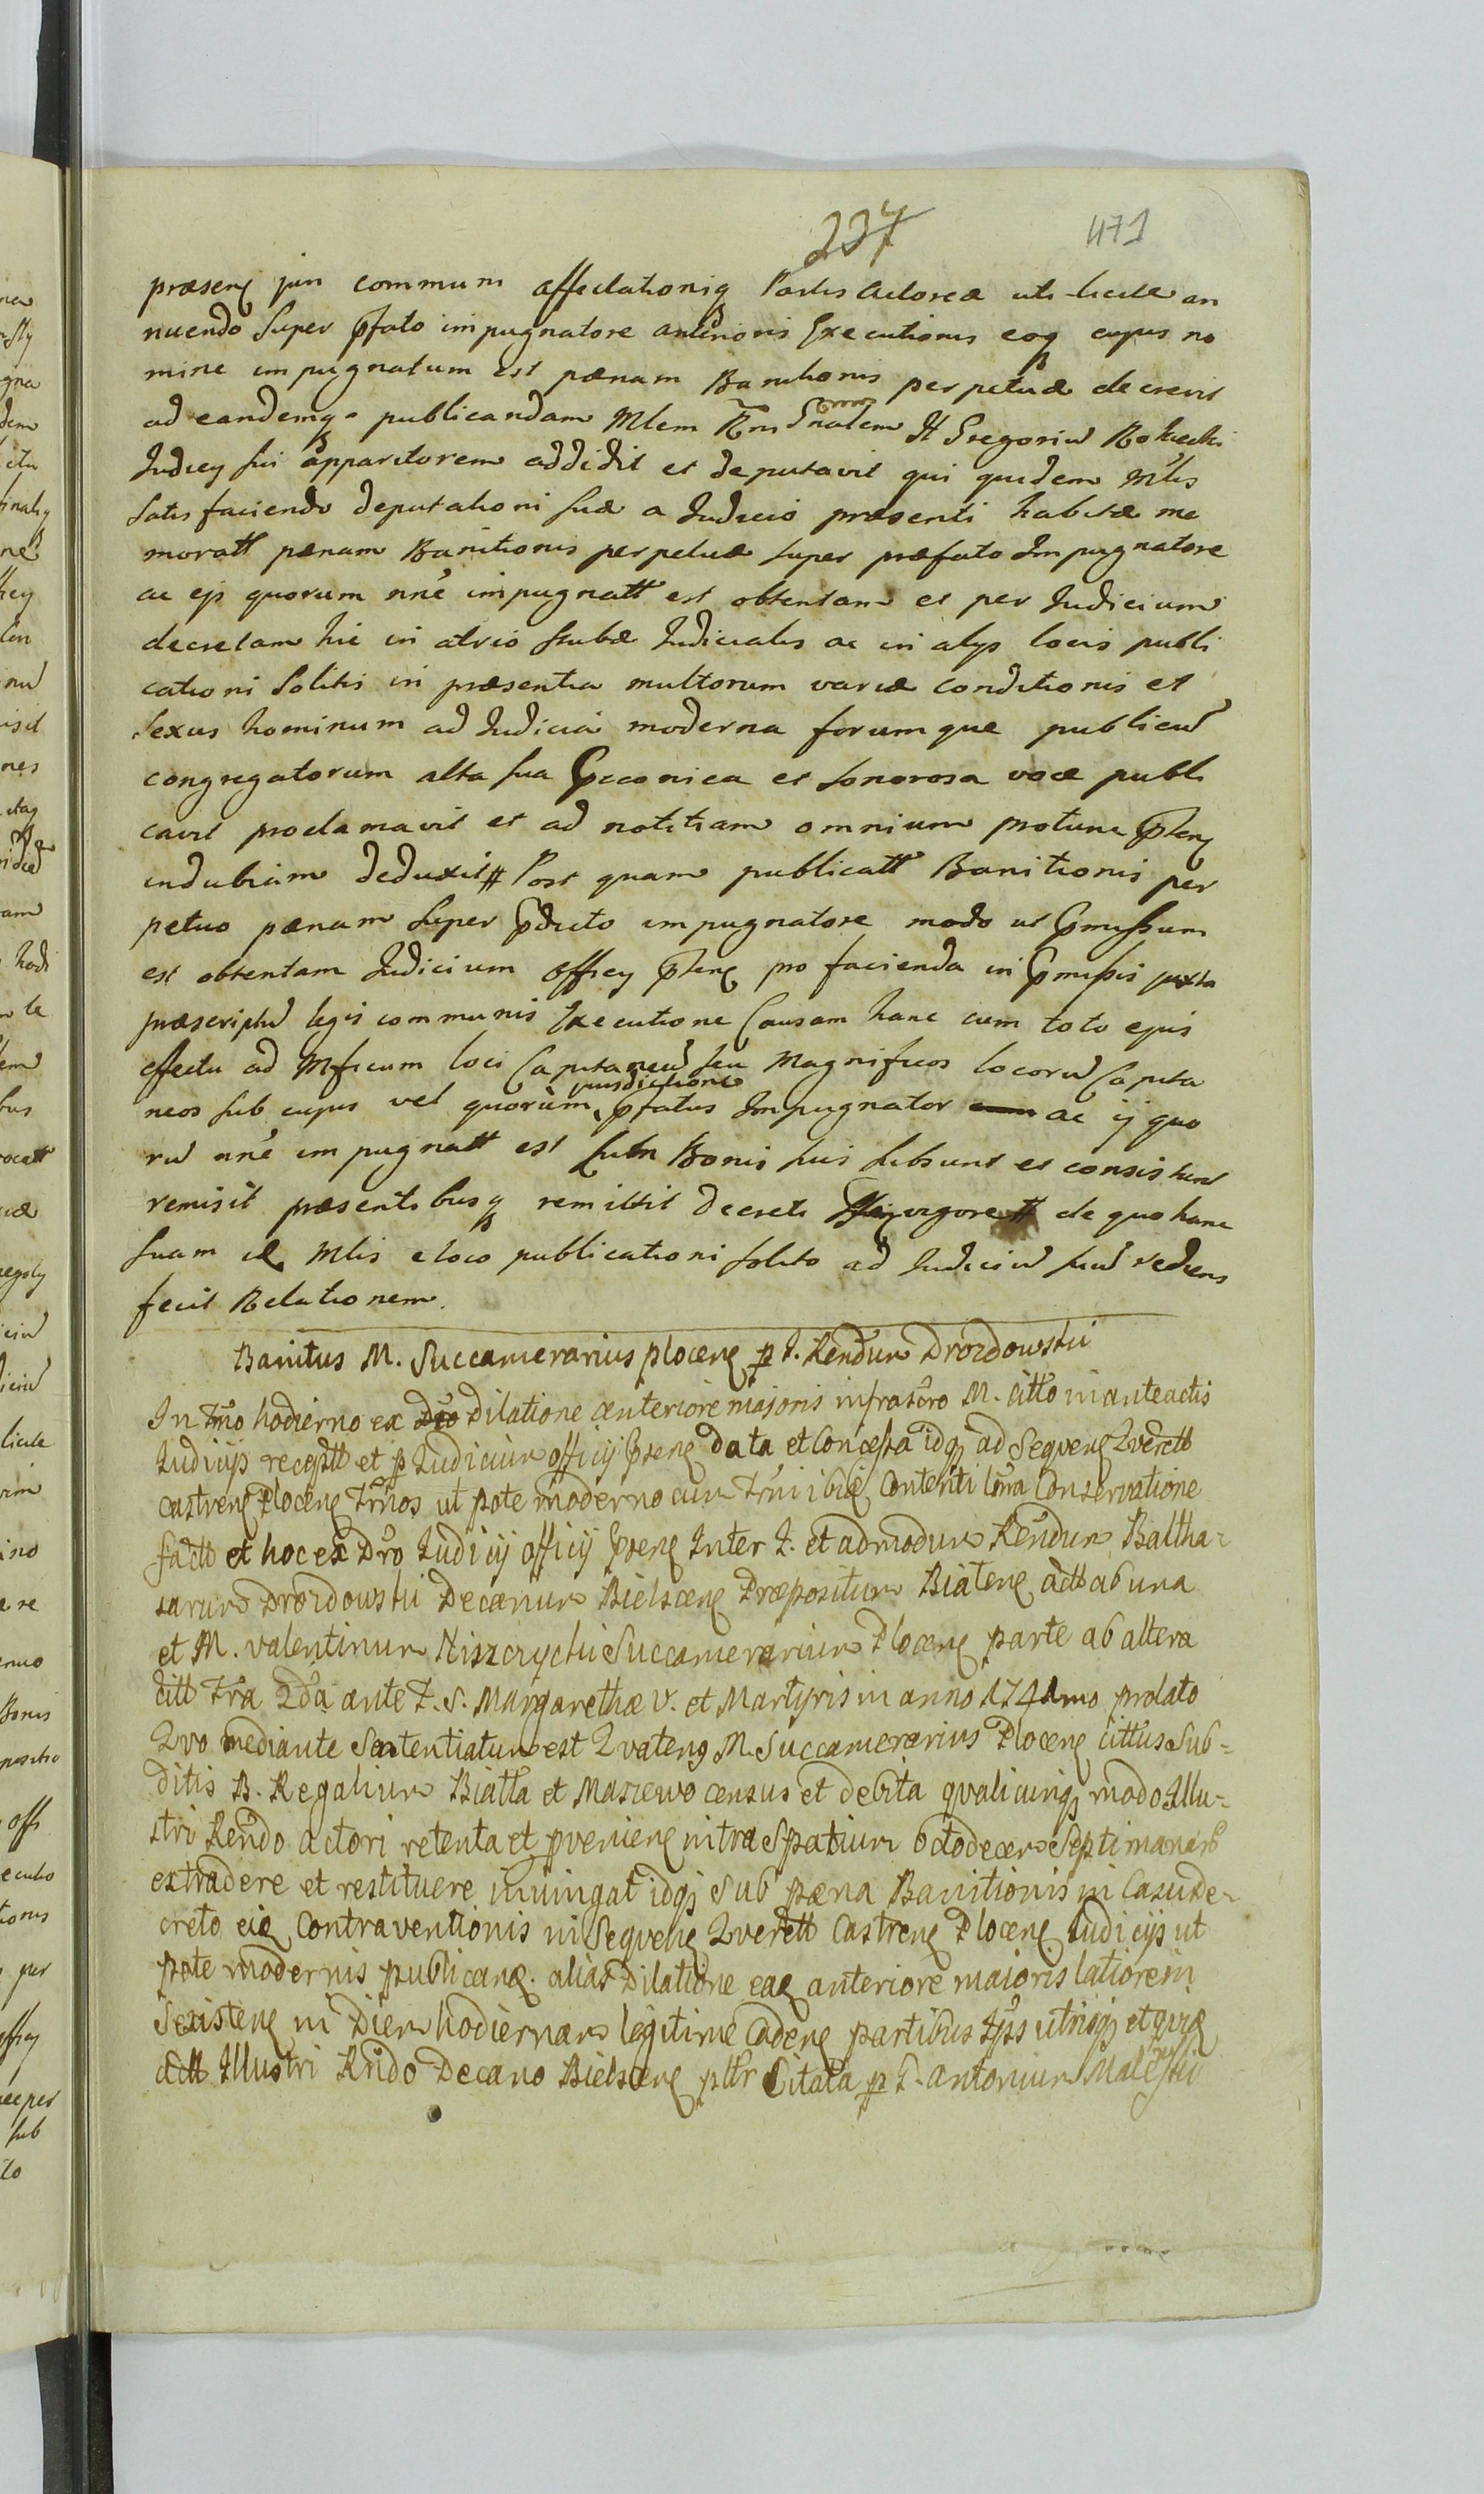 237 471
præsenę juri communi affectationiq Partis Actoreæ uti licitæ an
nuendo super pfato impugnatore anterioris Executionis eoq cujus no
mine impugnatum est pœnam Banitionis perpetuæ decrevit
ad eandemq publicandam Mlem Rni Gnalem H Gregoriu Rokicki
Judicy sui apparitorem addidit et deputavit qui quidem Mlis
satis faciendo deputationi suæ a Judicio præsenti habitæ me
moratt pœnam Banitionis perpetuæ super præfato Impugnatore
ac ejs quorum nne impugnatt est obtentam et per Judicium
decretam hic in atrio stubæ Judicialis ac in alys locis publi
cationi solitis in præsentia multorum variæ conditionis et
sexus hominum ad Judicia moderna forumque publicu
congregatorum alta sua pconica et sonorosa voce publi
cavit proclamavit et ad notitiam omnium protunc pntę
indubiam deduxit # Post quam publicatt Banitionis per
petuo pœnam super pdicto impugnatore modo ut pmissum
est obtentam Judicium Officy pntę pro facienda in pmissis juxta
præscriptu legis communis Executione Causam hanc cum toto ejus
effectu ad Mficum loci Capitaneu seu Magnificos locoru Capita
neos sub cujus vel quorum jurisdictione pfatus Impugnator ac ij quo
ru nne impugnatt est cum Bonis suis subsunt et consistunt
remisit præsentibusq remittit decreti vigore # de quo hanc
suam Mlis e loco publicationi solito ad Judiciu suu rediens
fecit Relationem.
Banitus M. Succamerarius plocenę p I. Rendum Drozdowski
In Tmo hodierno ex Dilatione anteriore majoris infrascro M. citto in anteactis
Judicijs receptt et p Judicium officij psenę data et Concessa idq ad Seqvenę Qverett
castrenę Plocenę Trnos ut pote moderno cum Trni ibię Contenti lima Conservatione
factt et hoc ex Dro Judicij officij psenę Inter I. et admodum Rendum Baltha-
sarum Drozdowski Decanum Bielscenę Præpositum Biatenę actt ab una
et M. valentinum Niszczycki Succamerarium Plocenę parte ab altera
citt Fra 2da ante F. S. Margarethæ V. et Martyris in anno 1741mo prolato
Qvo mediante Sententiatum est Qvatenq M. Succamerarius Plocenę cittus Sub-
ditis B. Regalium Biatta et Maszewo census et debita qvalicunq modo Illu-
stri Rendo actori retenta et pvenienę intra Spatium octodecem Septimanaru
extradere et restituere iniungat idq Sub pæna Banitionis in Casu De-
creto eię Contraventionis in Seqvenę Qverett Castrenę Plocenę Judicijs ut
pote modernis publicanę. alias Dilatione eaę anteriore maioris latiorem
Sexistenę in Diem hodiernam legitime Cadenę partibus Ipss utrisq et qvię
actt Illustri Rndo Decano Bielscenę pltr Citata p I. antonium Maleski